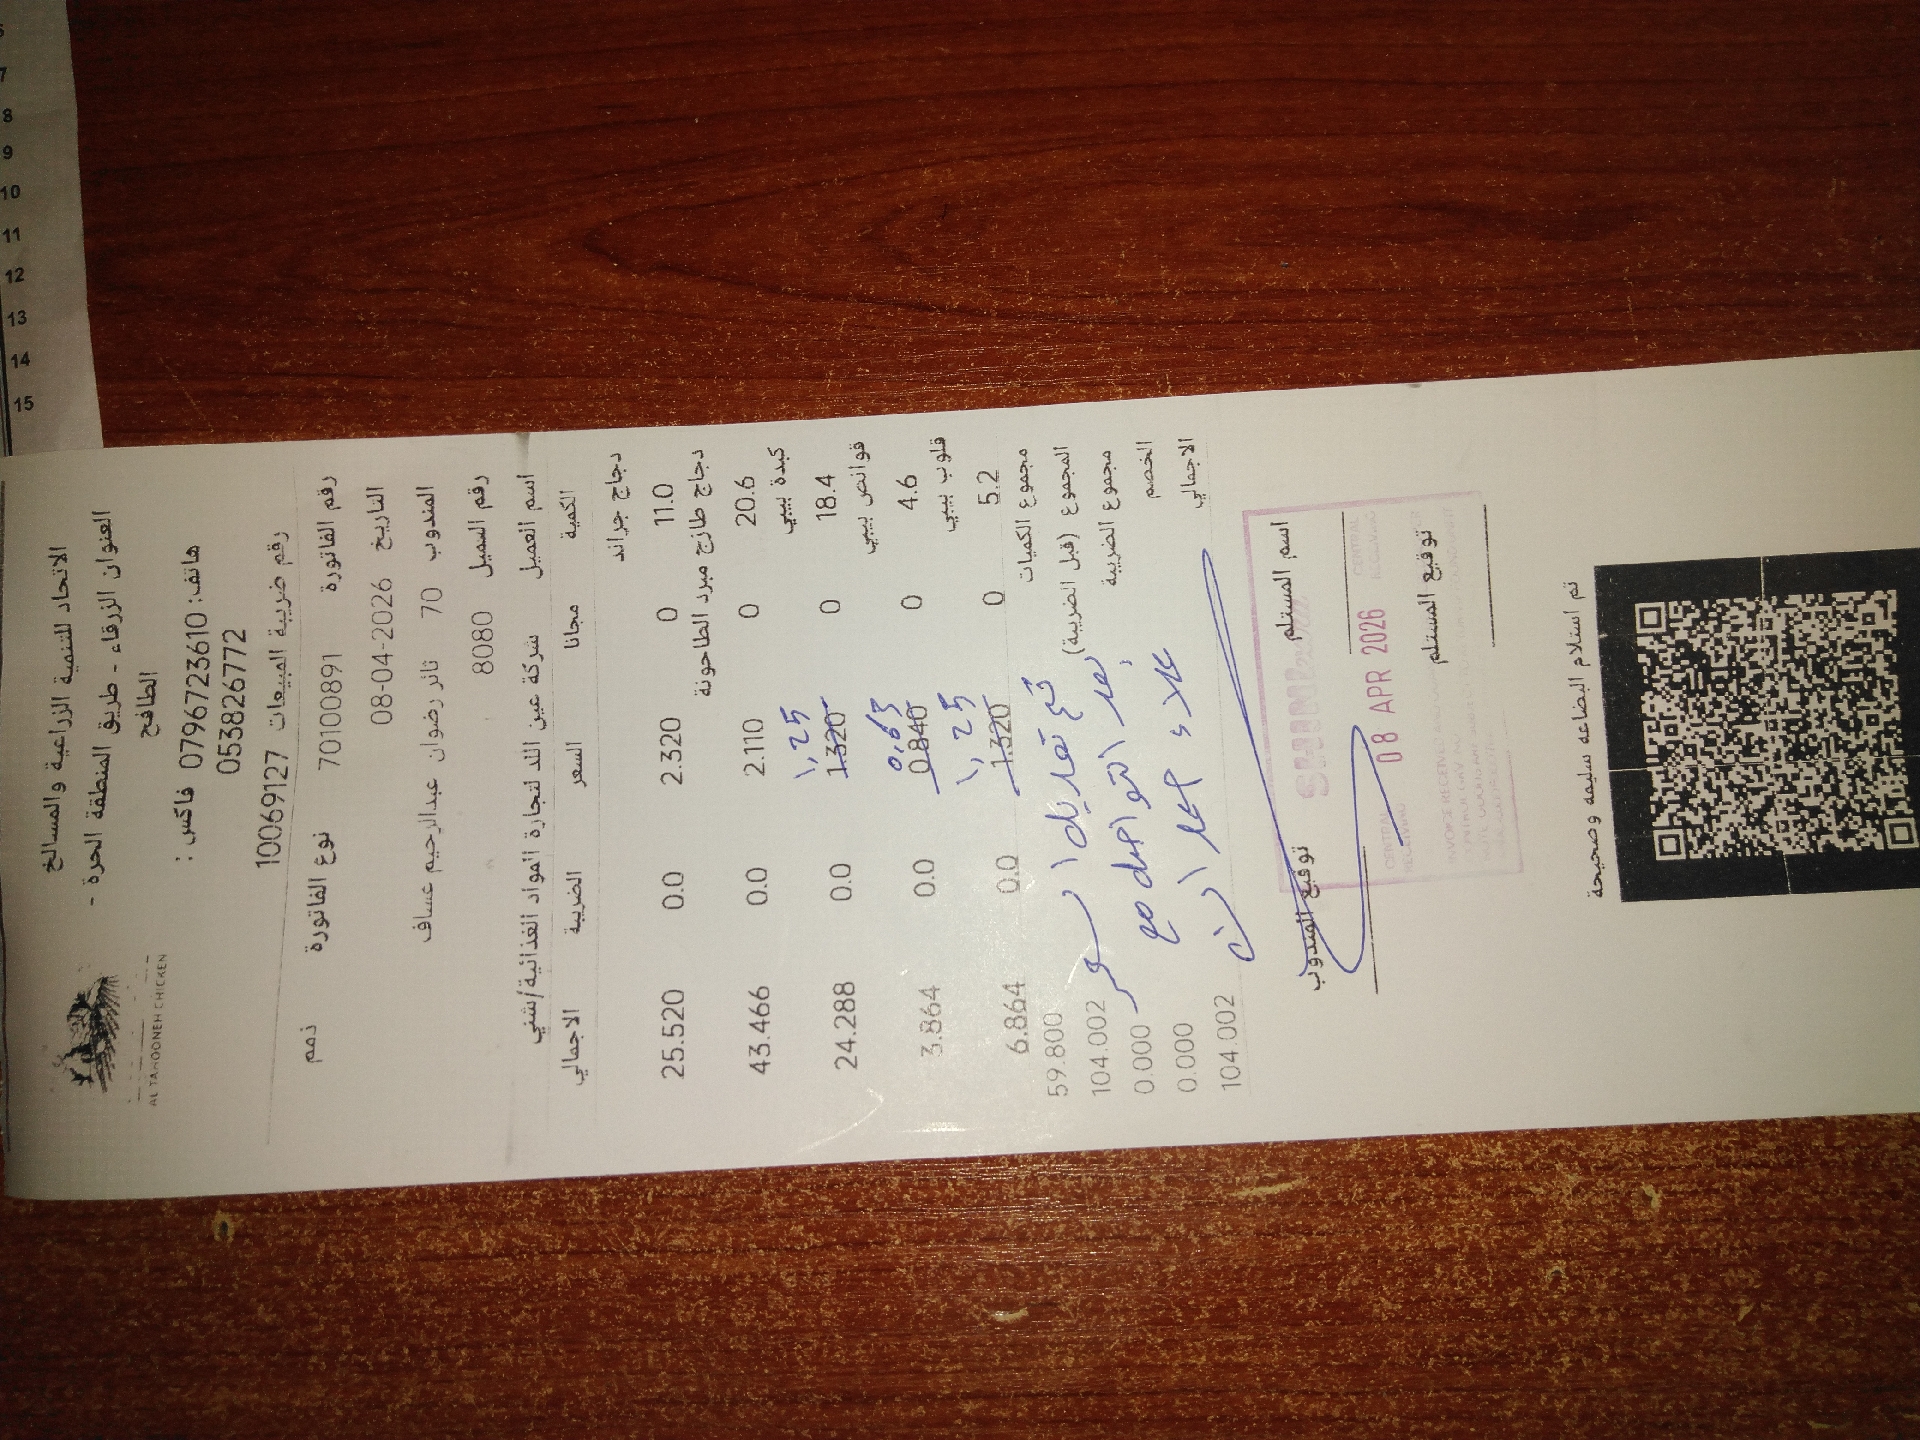 الاتحاد للتنمية الزراعية والمسالخ
العنوان الزرقاء - طريق المنطقة الحرة -
الطافح
هاتف: 0796723610 فاكس :
0538266772
AL TAHOONEH CHICKEN
رقم ضريبة المبيعات 10069127
رقم الفاتورة 70100891 نوع الفاتورة ذمم
التاريخ 08-04-2026
المندوب 70 ثائر رضوان عبدالرحيم عساف
رقم العميل 8080
اسم العميل شركة عين اللد لتجارة المواد الغذائية/شني
الكمية مجانا السعر الضريبة الاجمالي
دجاج جراند
11.0 0 2.320 0.0 25.520
دجاج طازج مبرد الطاحونة
20.6 0 2.110 0.0 43.466
كبدة بيبي
1,25
18.4 0 1.320 0.0 24.288
قوانص بيبي
0,63
4.6 0 0.840 0.0 3.864
قلوب بيبي
1,25
5.2 0 1.320 0.0 6.864
مجموع الكميات 59.800
المجموع (قبل الضريبة) 104.002
مجموع الضريبة 0.000
الخصم 0.000
الاجمالي 104.002
تم تعديل السعر
بعد التواصل مع
علاء
اسم المستلم توقيع المندوب
08 APR 2026
CENTRAL
RECEIVING
توقيع المستلم
تم استلام البضاعه سليمه وصحيحة
6
7
8
9
10
11
12
13
14
15